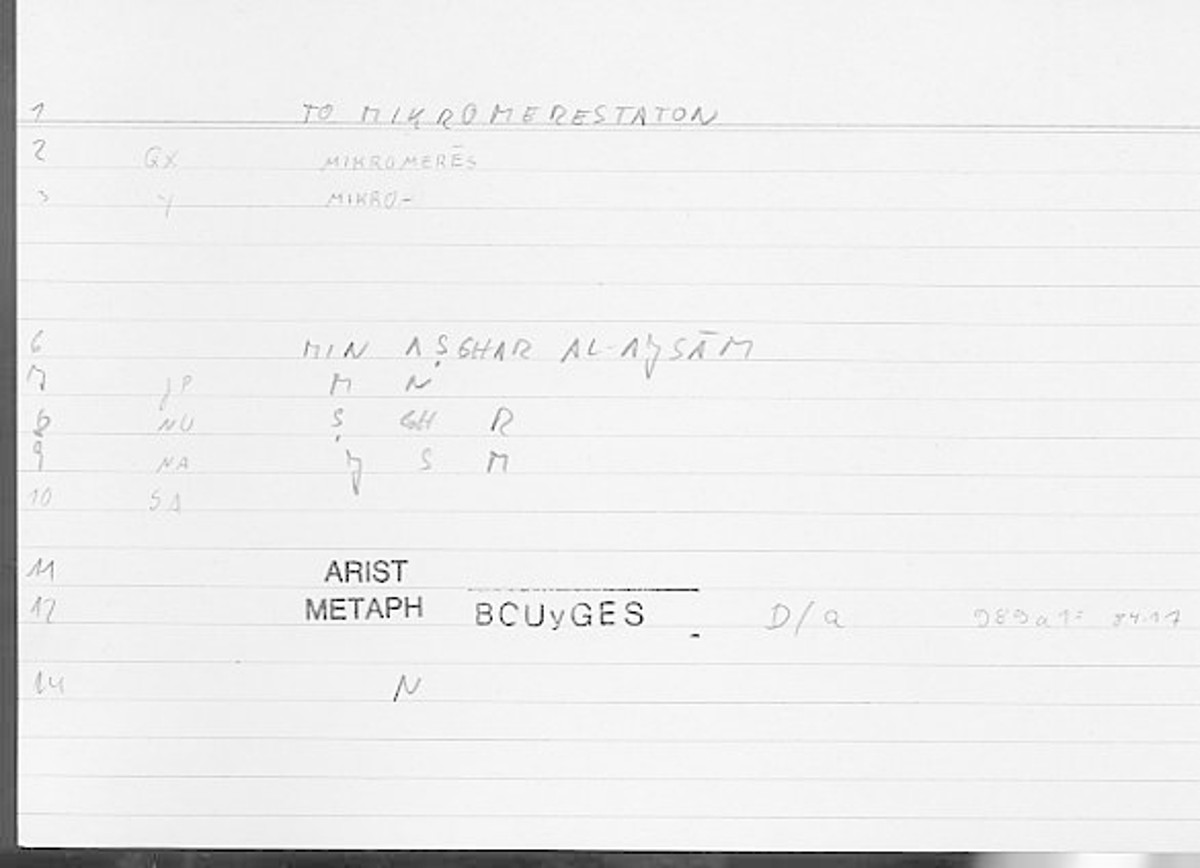 1 TO MIKROMERESTATON
2 GX MIKROMERĒS
3 Y MIKRO-
6 MIN AṢGHAR AL-AJSĀM
7 JP M N
8 NU Ṣ GH R
9 NA J S M
10 SA
11 ARIST
12 METAPH BCUyGES D/a 989a1: 84.17
14 N